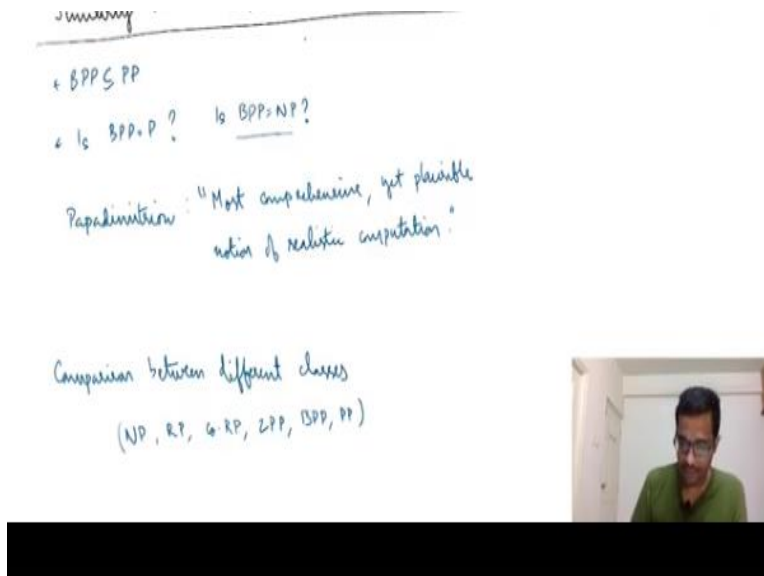 Similarly
* BPP ⊆ PP
* Is BPP = P? Is BPP = NP?
Papadimitriou: "Most comprehensive, yet plausible
notion of realistic computation."
Comparison between different classes
(NP, RP, co-RP, ZPP, BPP, PP)